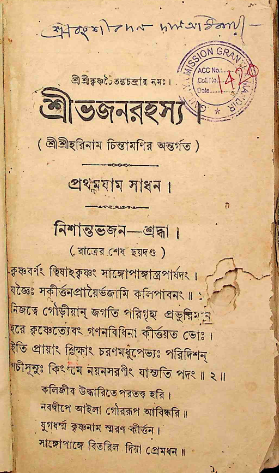 শ্রীশ্রীকৃষ্ণচৈতন্যচন্দ্রায় নমঃ।
শ্রীভজনরহস্য।
( শ্রীশ্রীহরিনাম চিন্তামণির অন্তর্গত )
প্রথমযাম সাধন।
নিশান্তভজন—শ্রদ্ধা।
( রাত্রের শেষ ছয়দণ্ড )
কৃষ্ণবর্ণং ত্বিষাহকৃষ্ণং সাঙ্গোপাঙ্গাস্ত্রপার্ষদং।
যজ্ঞৈঃ সঙ্কীর্ত্তনপ্রায়ৈর্ভজামি কলিপাবনং॥ ১
নিজত্বে গৌড়ীয়ান্ জগতি পরিগৃহ্য প্রভুরিমান্
হরে কৃষ্ণেত্যেবং গণনবিধিনা কীর্ত্তয়ত ভোঃ।
ইতি প্রায়াং শিক্ষাং চরণমধুপেভ্যঃ পরিদিশন্
শচীসূনুঃ কিং মে নয়নসরণীং যাস্যতি পদং॥ ২॥
কলিজীব উদ্ধারিতে পরতত্ত্ব হরি।
নবদ্বীপে আইলা গৌররূপ আবিষ্করি॥
যুগধর্ম্ম কৃষ্ণনাম স্মরণ কীর্ত্তন।
সাঙ্গোপাঙ্গে বিতরিল দিয়া প্রেমধন॥
MISSION GRAN
ACC No.
Coll No.
Date